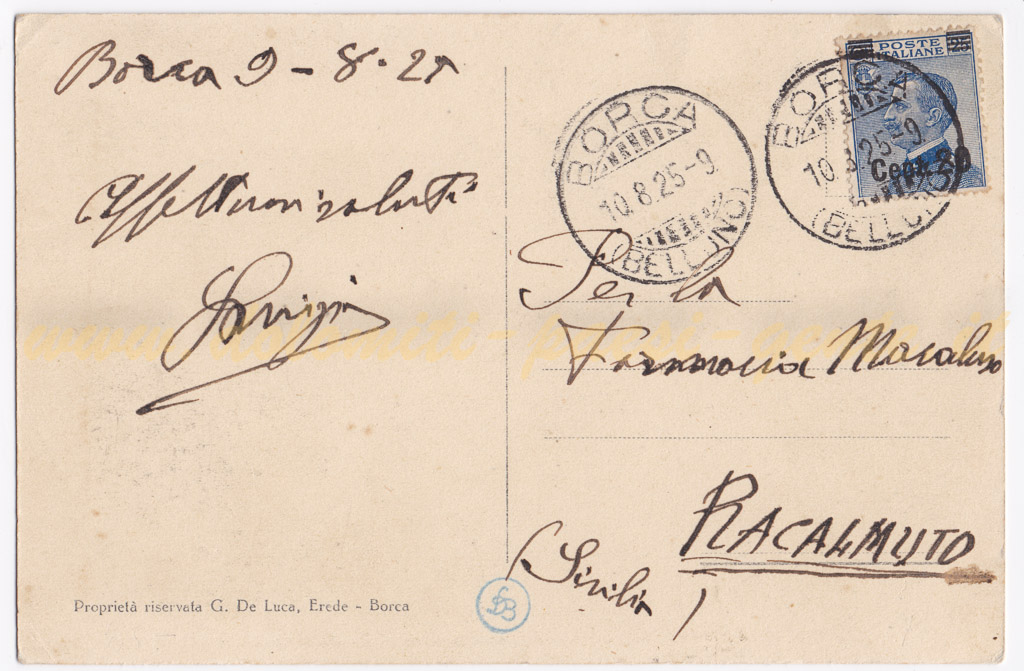 Borca 9 - 8 - 25
Affettuosi saluti
Luigi
Proprietà riservata G. De Luca, Erede - Borca
BORCA
10.8.25-9
(BELLUNO)
BORCA
10.8.25-9
(BELLUNO)
POSTE
ITALIANE
25
Cent. 20
Per la
Farmacia Macaluso
RACALMUTO
(Sicilia)
www.dolomiti-paesi-gente.it